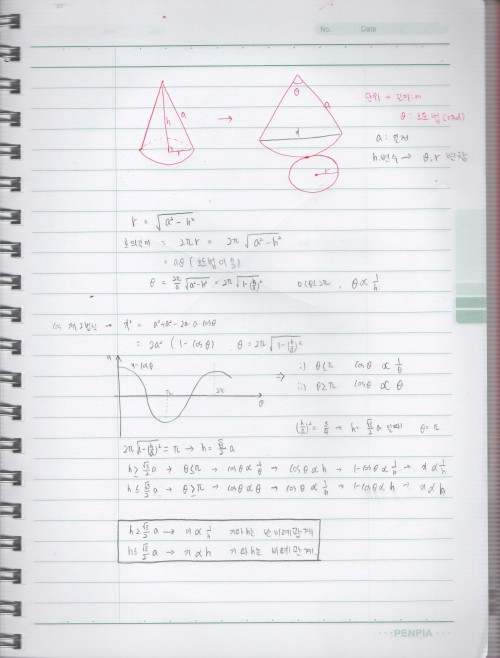 No. Date
θ
h a a
단위 → 길이: m
x
θ: 호도법 (rad)
r
a: 고정
r
h: 변수 → θ, r 변함
r = √a²-h²
호의길이 = 2πr = 2π√a²-h²
= aθ (호도법 이용)
θ = 2π/a √a²-h² = 2π√1-(h/a)² 0<θ<2π, θ ∝ 1/h
제 2법칙 → x² = a²+a²-2a·a cosθ
= 2a² (1-cosθ) θ = 2π√1-(h/a)²
x=cosθ
⇒ i) θ≤π cosθ ∝ 1/θ
π 2π θ ii) θ≥π cosθ ∝ θ
(h/a)² = 3/4 → h = √3/2 a 일때 θ=π
2π√1-(h/a)² = π → h = √3/2 a
h ≥ √3/2 a → θ≤π → cosθ ∝ 1/θ → cosθ ∝ h → 1-cosθ ∝ 1/h → x ∝ 1/h
h ≤ √3/2 a → θ≥π → cosθ ∝ θ → cosθ ∝ 1/h → 1-cosθ ∝ h → x ∝ h
h ≥ √3/2 a → x ∝ 1/h x와 h는 반비례관계
h ≤ √3/2 a → x ∝ h x와 h는 비례관계.
PENPIA